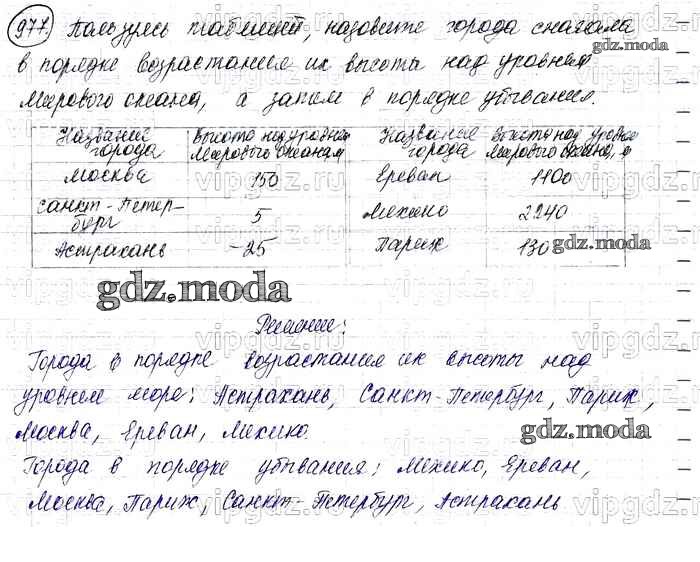 977. Пользуясь таблицей, назовите города сначала
в порядке возрастания их высоты над уровнем
Мирового океана, а затем в порядке убывания.
Название города | Высота над уровнем Мирового океана, м | Название города | Высота над уровнем Мирового океана, м
Москва | 150 | Ереван | 1100
Санкт-Петер-бург | 5 | Мехико | 2240
Астрахань | -25 | Париж | 130
gdz.moda
gdz.moda
gdz.moda
Решение:
Города в порядке возрастания их высоты над
уровнем море: Астрахань, Санкт-Петербург, Париж,
Москва, Ереван, Мехико.
gdz.moda
Города в порядке убывания: Мехико, Ереван,
Москва, Париж, Санкт-Петербург, Астрахань
vipgdz.ru